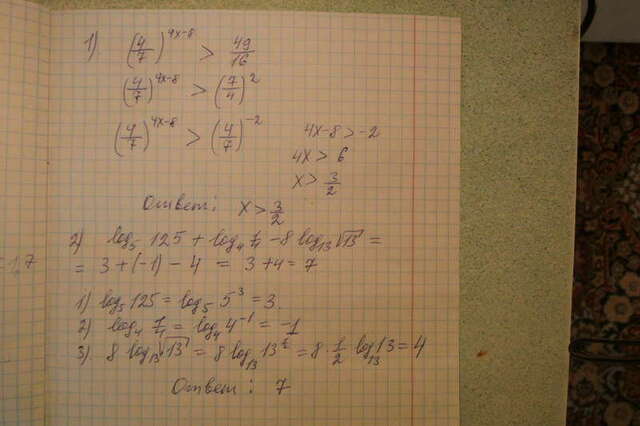 1) (4/7)^{4x-8} > 49/16
(4/7)^{4x-8} > (7/4)^2
(4/7)^{4x-8} > (4/7)^{-2} 4x-8>-2
4x > 6
x > 3/2
Ответ: x > 3/2
2) log_5 125 + log_4 1/4 - 8 log_{13} √13 =
= 3 + (-1) - 4 = 3+4 = 7
1) log_5 125 = log_5 5^3 = 3.
2) log_4 1/4 = log_4 4^{-1} = -1
3) 8 log_{13} √13 = 8 log_{13} 13^{1/2} = 8 · 1/2 log_{13} 13 = 4
Ответ: 7